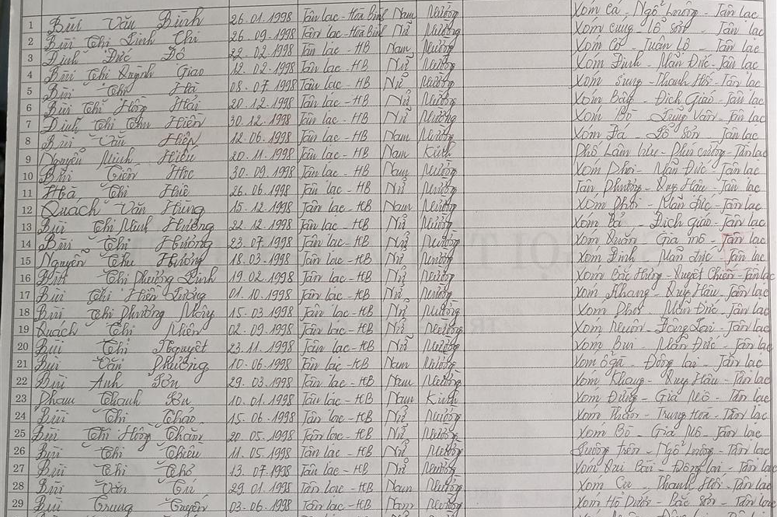 1 Bùi Văn Bình 26.01.1998 Tân Lạc-Hòa Bình Nam Mường Xóm Cá, Ngổ Luông - Tân Lạc
2 Bùi Thị Linh Chi 26.09.1998 Tân Lạc-Hòa Bình Nữ Mường Xóm Cung - Lỗ Sơn - Tân Lạc
3 Đinh Đức Đô 22.02.1998 Tân Lạc-HB Nam Mường Xóm Tuân Lộ - Tân Lạc
4 Bùi Thị Quỳnh Giao 12.02.1998 Tân Lạc-HB Nữ Mường Xóm Định - Mãn Đức - Tân Lạc
5 Bùi Thu Hà 08.07.1998 Tân Lạc-HB Nữ Mường Xóm Sung - Thanh Hối - Tân Lạc
6 Bùi Thị Hồng Hải 20.12.1998 Tân Lạc-HB Nữ Mường Xóm Địch Giáo - Tân Lạc
7 Đinh Thị Thu Hiền 30.12.1998 Tân Lạc-HB Nữ Mường Xóm Bò - Tân Lạc
8 Bùi Văn Hiện 12.06.1998 Tân Lạc-HB Nam Mường Xóm Lỗ Sơn - Tân Lạc
9 Nguyễn Minh Hiếu 20.11.1998 Tân Lạc-HB Nam Kinh Phố Lâm Phú Cường - Tân Lạc
10 Bùi Tiến 30.09.1998 Tân Lạc-HB Nam Mường Xóm Mãn Đức - Tân Lạc
11 Hà Thị Huê 26.06.1998 Tân Lạc-HB Nữ Mường Tân Phương - Quy Hậu - Tân Lạc
12 Quách Văn Hùng 15.12.1998 Tân Lạc-HB Nam Mường Xóm Mãn Đức - Tân Lạc
13 Bùi Thị Minh Hường 22.12.1998 Tân Lạc-HB Nữ Mường Xóm Địch Giáo - Tân Lạc
14 Bùi Thị Hương 23.07.1998 Tân Lạc-HB Nữ Mường Xóm Gia Mô - Tân Lạc
15 Nguyễn Thu Hương 18.03.1998 Tân Lạc-HB Nữ Mường Xóm Định - Mãn Đức - Tân Lạc
16 Bùi Thị Phương Linh 19.02.1998 Tân Lạc-HB Nữ Mường Xóm Bắc Hưng - Quyết Chiến - Tân Lạc
17 Bùi Thị Hiền Lương 01.10.1998 Tân Lạc-HB Nữ Mường Xóm Khang - Quy Hậu - Tân Lạc
18 Bùi Thị Phương 15.03.1998 Tân Lạc-HB Nữ Mường Xóm Mãn Đức - Tân Lạc
19 Quách Thị Miên 02.09.1998 Tân Lạc-HB Nữ Mường Xóm Tân Lạc
20 Bùi Thị Nguyệt 23.11.1998 Tân Lạc-HB Nữ Mường Xóm Bui - Mãn Đức - Tân Lạc
21 Bùi Văn Phương 10.06.1998 Tân Lạc-HB Nam Mường Xóm Đông Lai - Tân Lạc
22 Bùi Anh Sơn 29.03.1998 Tân Lạc-HB Nam Mường Xóm Khang - Quy Hậu - Tân Lạc
23 Phạm Thanh Sơn 10.01.1998 Tân Lạc-HB Nam Kinh Xóm Gia Mô - Tân Lạc
24 Bùi Thị Thảo 15.06.1998 Tân Lạc-HB Nữ Mường Xóm Trung Hòa - Tân Lạc
25 Bùi Thị Hồng Thắm 20.05.1998 Tân Lạc-HB Nữ Mường Xóm Bò - Gia Mô - Tân Lạc
26 Bùi Thị Thiêu 11.05.1998 Tân Lạc-HB Nữ Mường Luông Trên - Ngổ Luông - Tân Lạc
27 Bùi Thị Thơ 13.07.1998 Tân Lạc-HB Nữ Mường Xóm Đông Lai - Tân Lạc
28 Bùi Văn Tú 29.01.1998 Tân Lạc-HB Nam Mường Xóm Thanh Hối - Tân Lạc
29 Bùi Trung Tuyến 03.06.1998 Tân Lạc-HB Nam Mường Xóm Hồ Dưới - Bắc Sơn - Tân Lạc